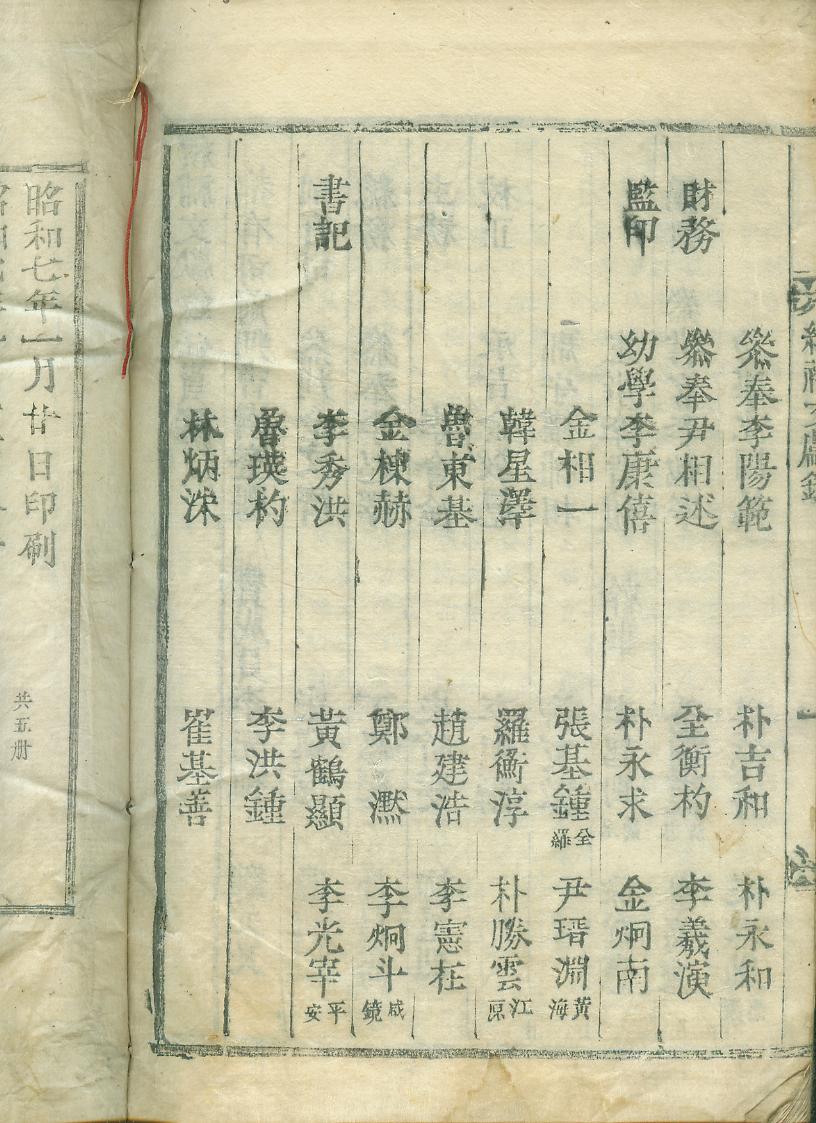 參奉李陽範 朴吉和 朴永和
財務 參奉尹相述 全衡杓 李羲演
監印 幼學李康僖 朴永求 金炯南
金相一 張基鍾 全羅 尹瑨淵 黃海
韓星澤 羅衡淳 朴勝雲 江原
魯東基 趙建浩 李憲柱
金棟赫 鄭濈 李炯斗 咸鏡
書記 李秀洪 黃鶴顯 李光宰 平安
魯瑛杓 李洪鍾
林炳洙 崔基善
昭和七年一月廿日印刷
共五册